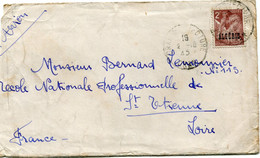 Avion
Monsieur Bernard
N° 113
Ecole Nationale Professionnelle de
St Etienne
Loire
France
ALGERIE